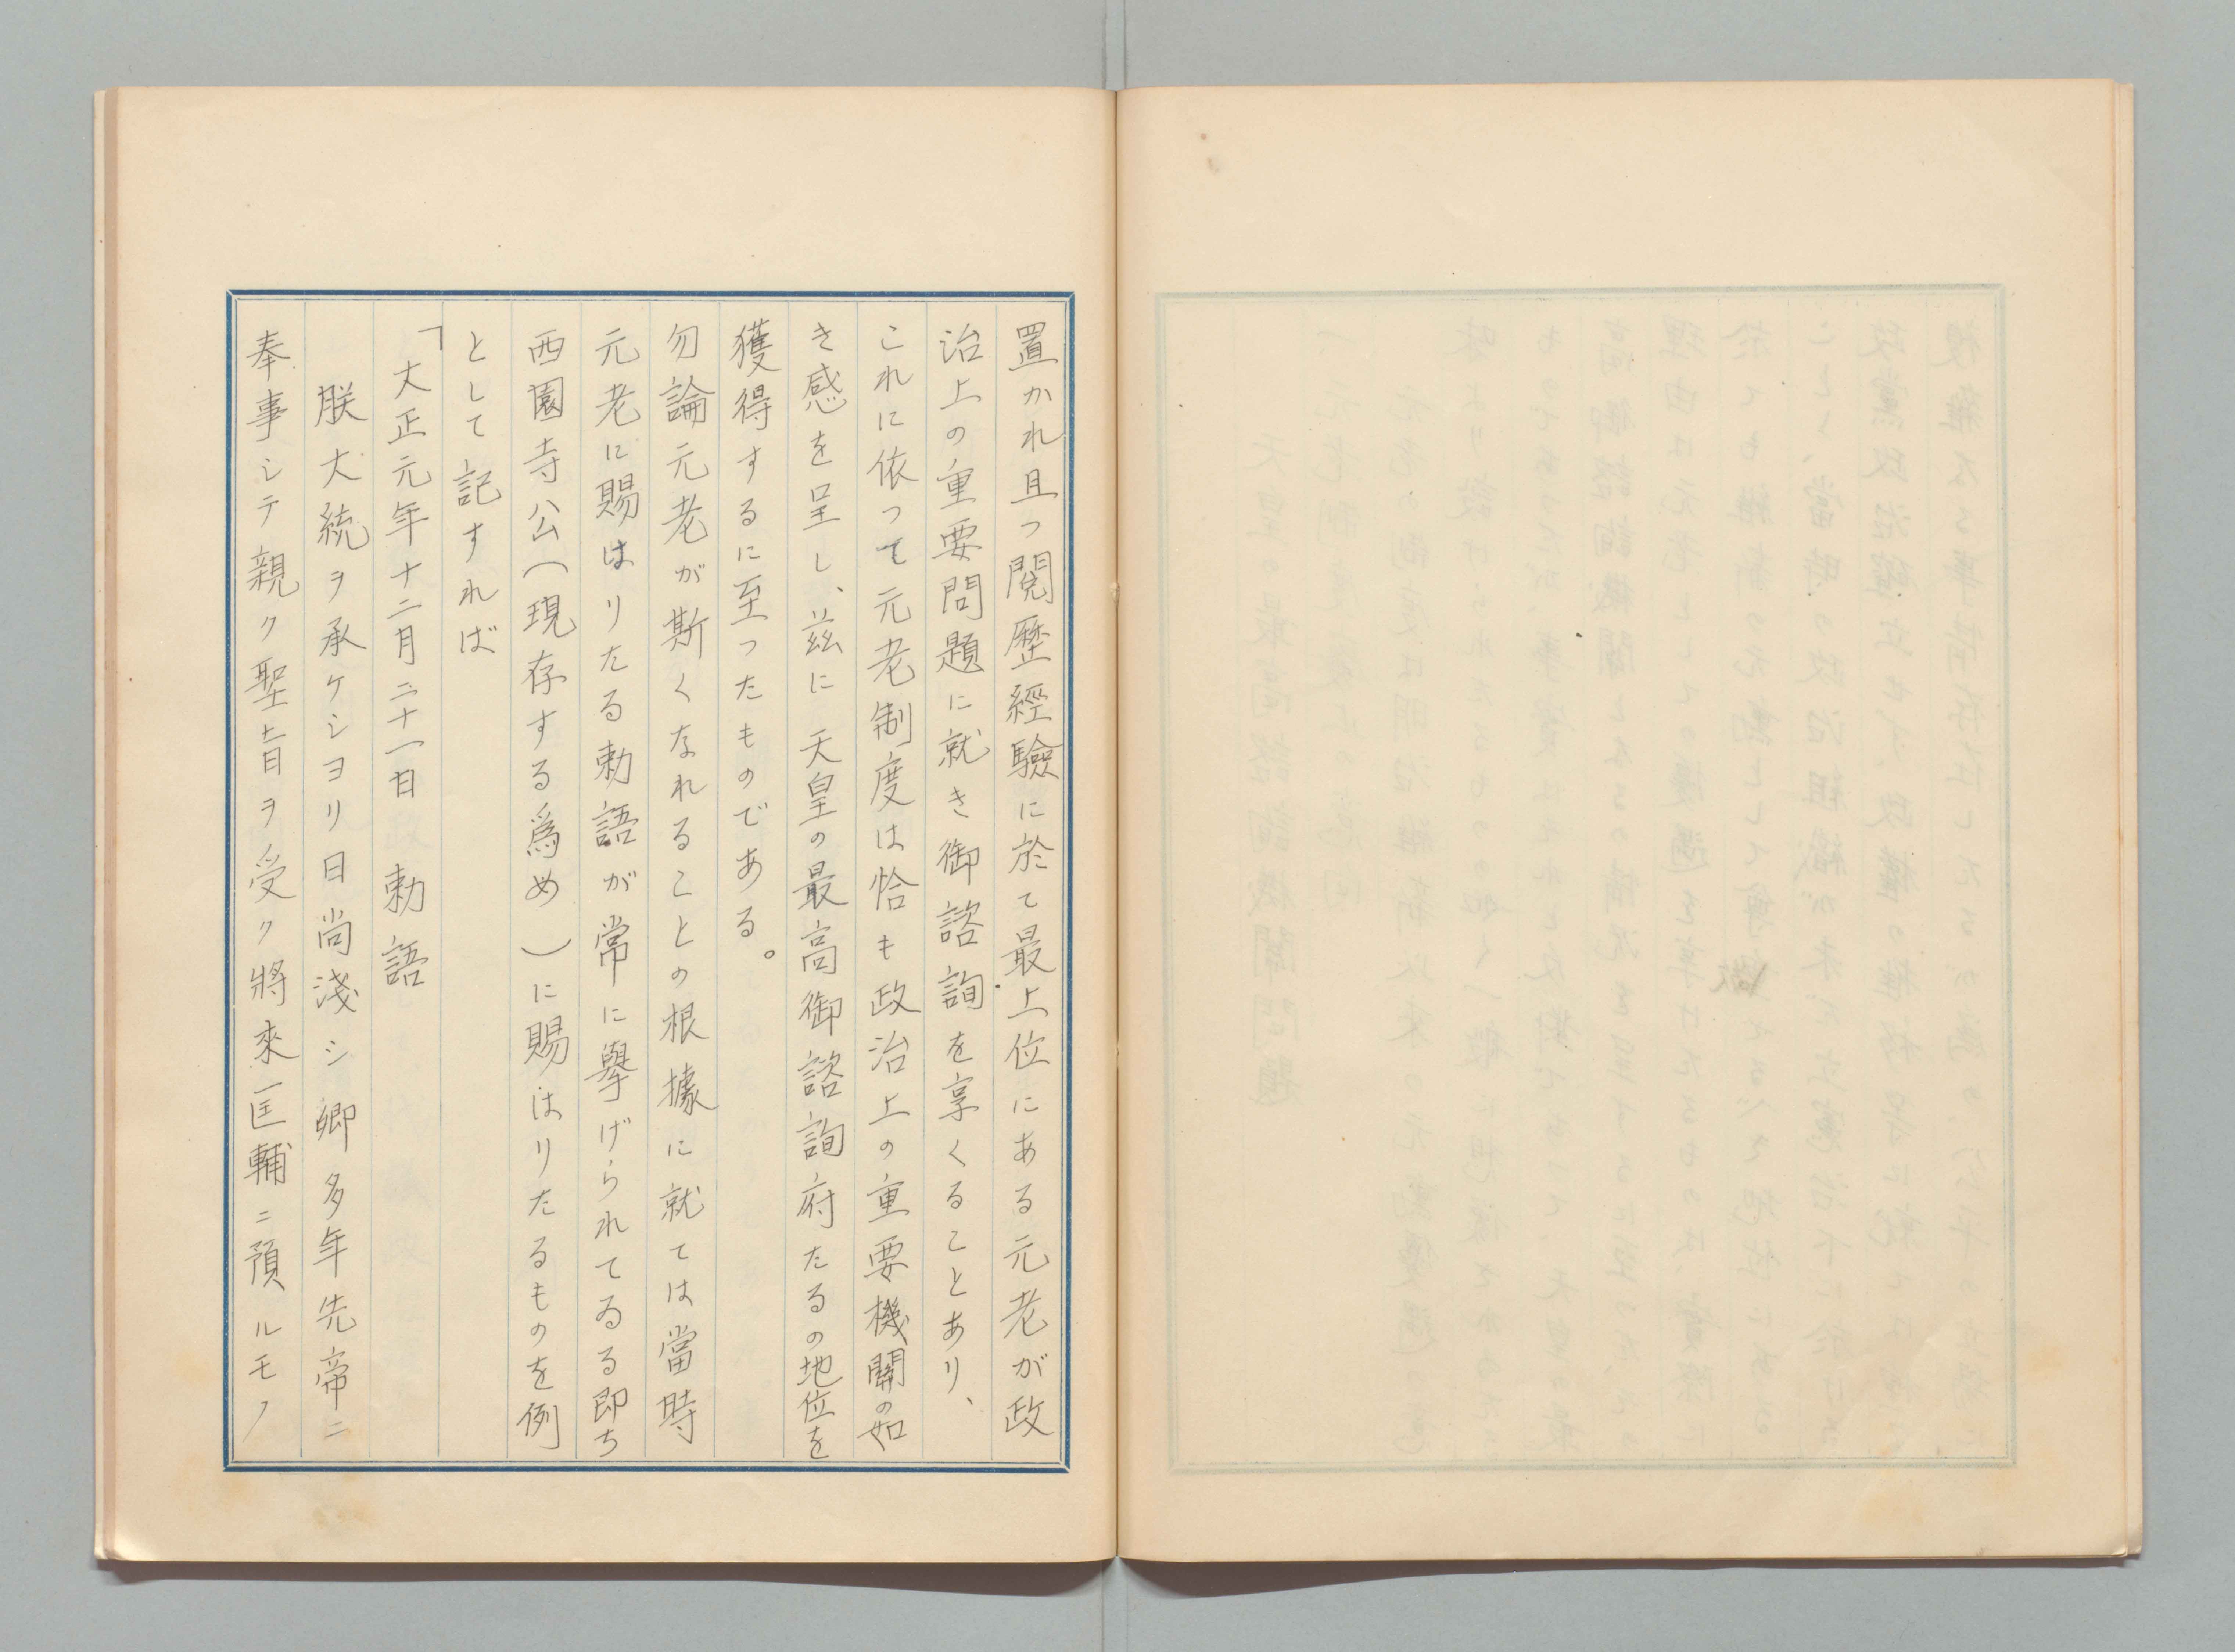 置かれ且つ閲歴經驗に於て最上位にある元老が政
治上の重要問題に就き御諮詢を享くることあり、
これに依って元老制度は恰も政治上の重要機關の如
き感を呈し、茲に天皇の最高御諮詢府たるの地位を
獲得するに至つたものである。
勿論元老が斯くなれることの根據に就ては當時
元老に賜はりたる勅語が常に擧げられてゐる即ち
西園寺公(現存する爲め)に賜はりたるものを例
として記すれば
「大正元年十二月二十一日 勅語
朕大統ヲ承ケシヨリ日尚淺シ卿多年先帝ニ
奉事シテ親ク聖旨ヲ受ク將來匡輔ニ預ルモノ